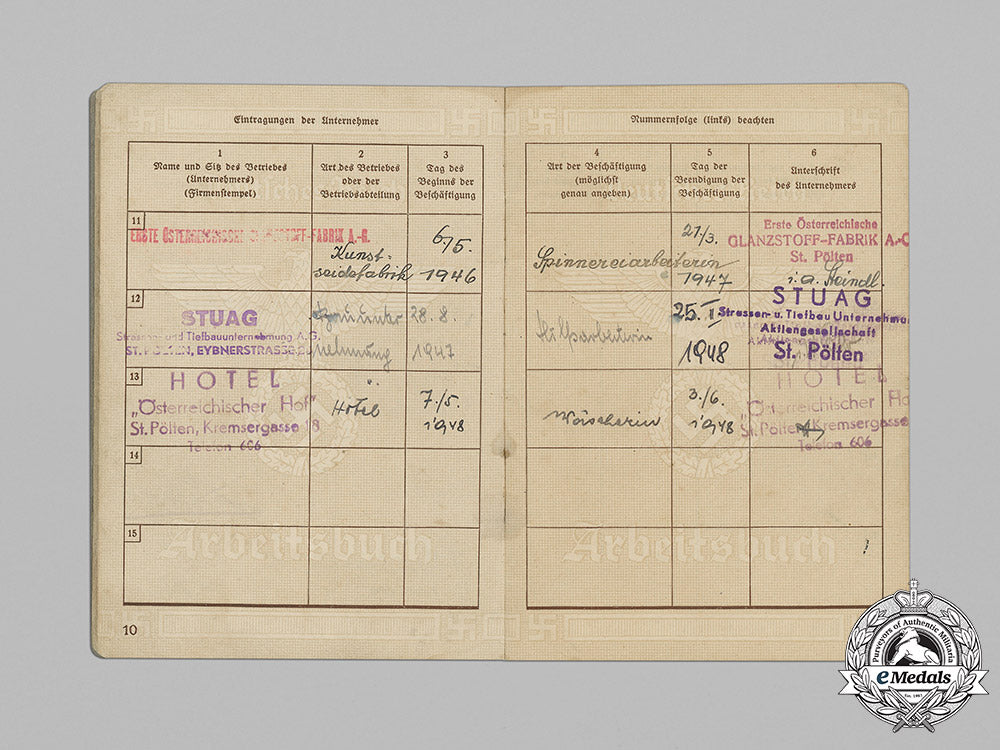 Eintragungen der Unternehmer
1
Name und Sitz des Betriebes
(Unternehmers)
(Firmenstempel)
2
Art des Betriebes
oder der
Betriebsabteilung
3
Tag des
Beginns der
Beschäftigung
11
ERSTE ÖSTERREICHISCHE GLANZSTOFF-FABRIK A.-G.
Kunst-
seidefabrik
6./5.
1946
12
STUAG
Strassen- und Tiefbauunternehmung A.G.
ST. PÖLTEN, EYBNERSTRASSE
Bauunter
nehmung
28. 8.
1947
13
HOTEL
"Österreichischer Hof"
St. Pölten, Kremsergasse 18
Telefon 606
Hotel
7./5.
1948
14
15
Arbeitsbuch
10
Nummernfolge (links) beachten
4
Art der Beschäftigung
(möglichst
genau angeben)
5
Tag der
Beendigung der
Beschäftigung
6
Unterschrift
des Unternehmers
Spinnereiarbeiterin
21/3.
1947
Erste Österreichische
GLANZSTOFF-FABRIK A.-G
St. Pölten
i. a. Steindl.
Hilfsarbeiterin
25. I
1948
STUAG
Strassen- u. Tiefbau Unternehmun
Aktiengesellschaft
St. Pölten
Wäscherin
3./6.
1948
HOTEL
"Österreichischer Ho
St. Pölten, Kremsergasse
Telefon 606
Arbeitsbuch
Purveyors of Authentic Militaria
eMedals